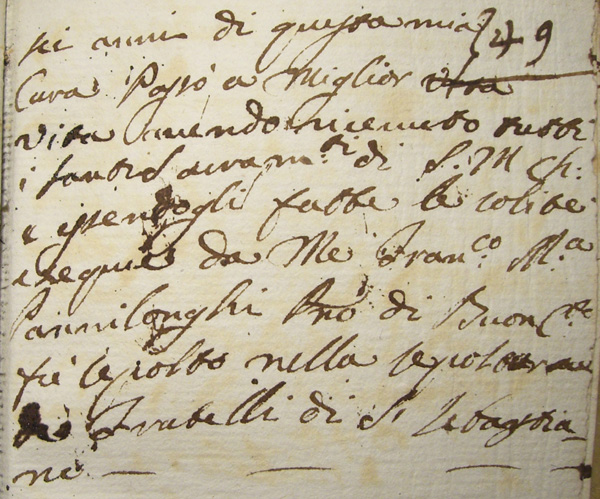 sei anni di questa mia 249
Cura Passò a Miglior vita
vita avendo ricevuto tutti
i santi Sacram.ti di S. M. Ch.
e essendogli fatte le solite
esequie da Me Fran.co M.a
Pannilonghi di Buon
fù sepolto nella sepoltura
de Fratelli di S. Sebastia-
no — — — —